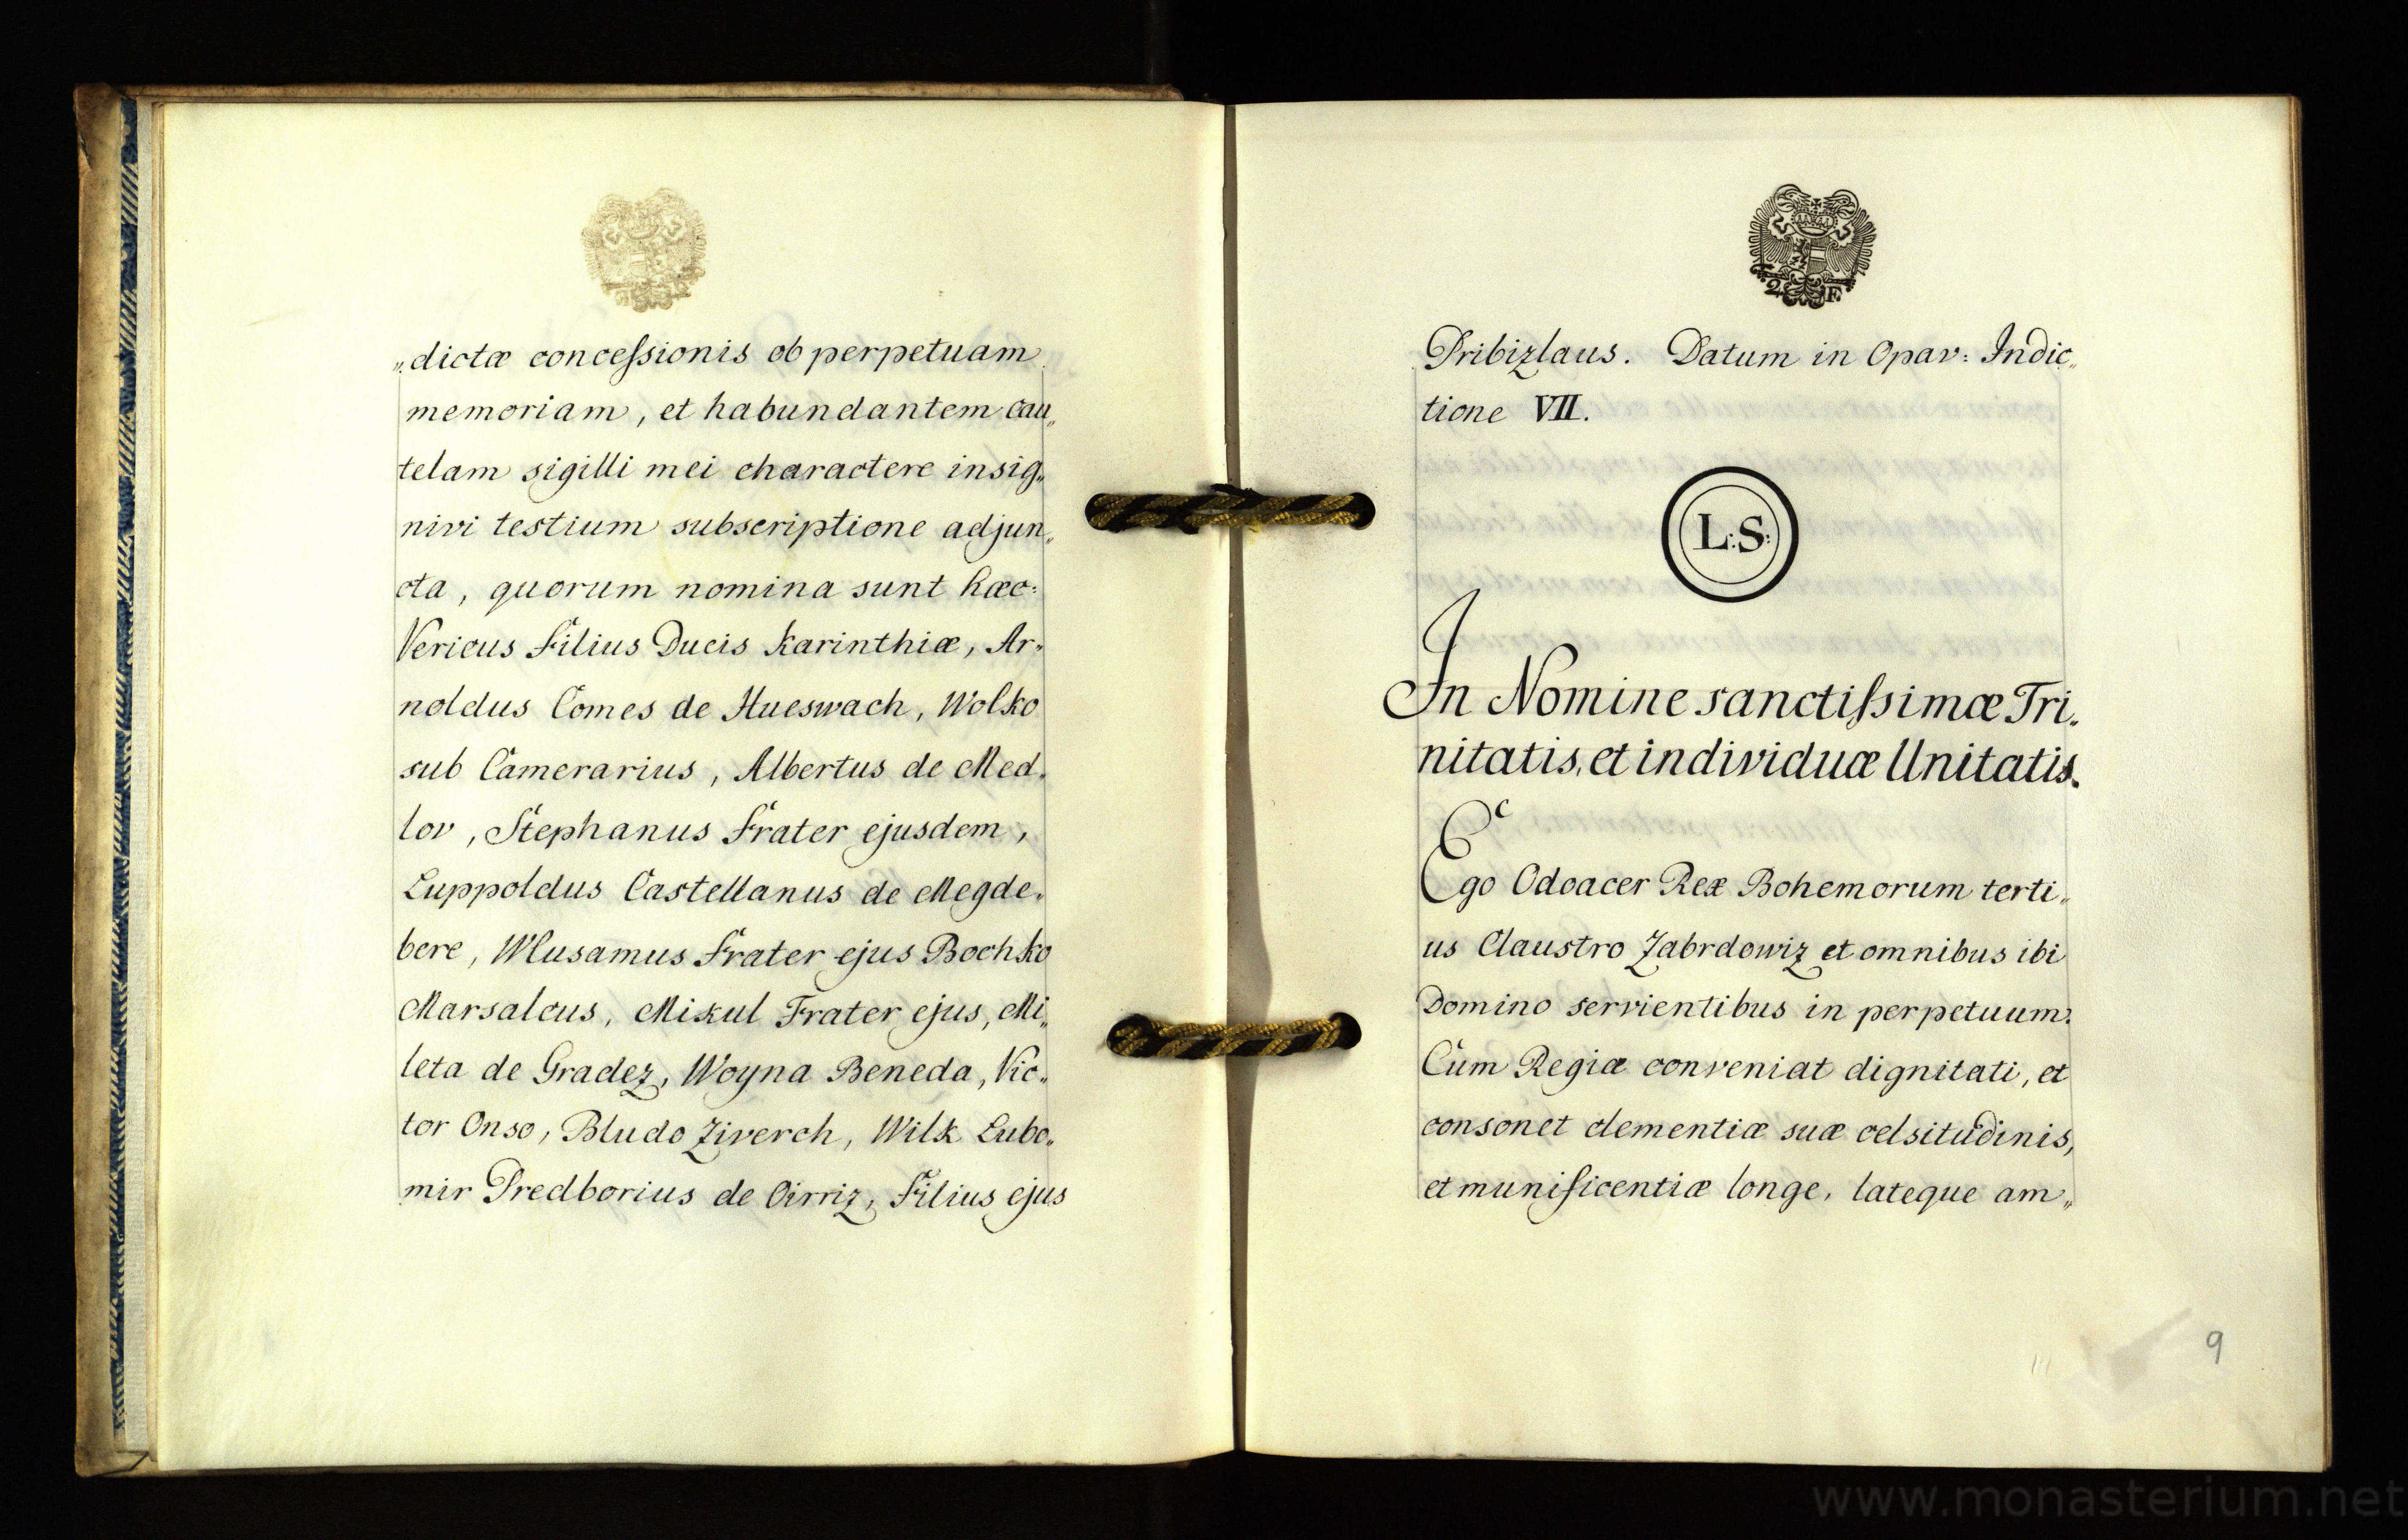 „dictæ conceſsionis ob perpetuam
memoriam, et habundantem cau„
telam sigilli mei charactere insig„
nivi testium subscriptione adjun„
cta, quorum nomina sunt hæc:
Vericus Filius Ducis Karinthiæ, Ar„
noldus Comes de Hueswach, Wolko
sub Camerarius, Albertus de Med„
lov, Stephanus Frater ejusdem,
Luppoldus Castellanus de Megde„
bere, Wlusamus Frater ejus Bochko
Marsalcus, Mikul Frater ejus, Mi„
leta de Gradez, Woyna Beneda, Vic„
tor Onso, Bludo Ziverch, Wilk Lubo„
mir Predborius de Oirriz, Filius ejus
2 F
Pribizlaus. Datum in Opav: Indic„
tione VII.
L:S:
In Nomine sanctiſsimæ Tri„
nitatis, et individuæ Unitatis.
Ego Odoacer Rex Bohemorum terti„
us Claustro Zabrdowiz et omnibus ibi
Domino servientibus in perpetuum.
Cum Regiæ conveniat dignitati, et
consonet clementiæ suæ celsitudinis,
et munificentiæ longe, lateque am„
9
www.monasterium.net